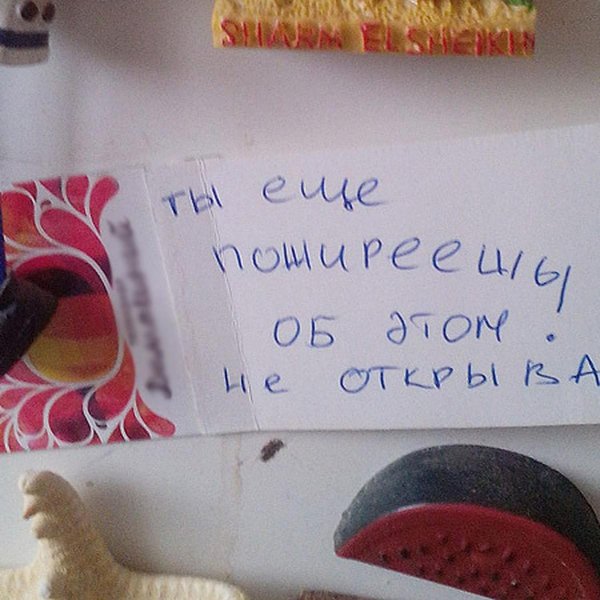 SHARM ELSHEIKH
ты еще
пожиреешы
об этом.
не открыва